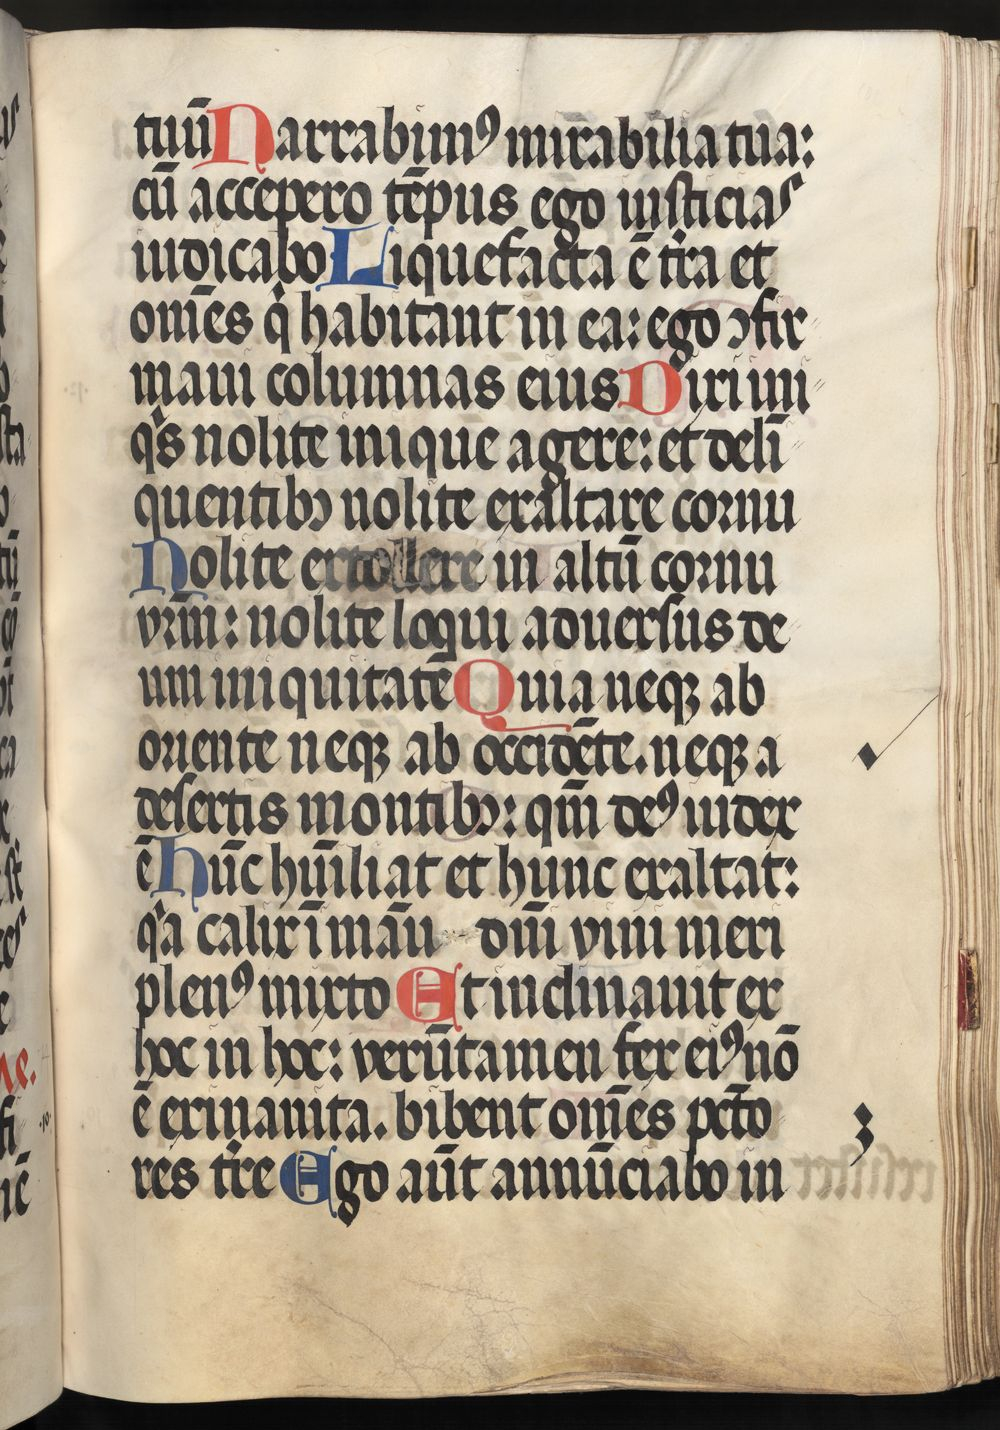 tuū Narrabimꝰ mirabilia tua:
cū accepero tēpus ego iusticias
iudicabo Liquefacta ē tr̄a et
om̄es q̇ habitant in ea: ego ↄfir
maui columnas eius Dixi ini
q̇s nolite inique agere: et delī
quentibꝫ nolite exaltare cornu
Nolite extollere in altū cornu
vr̄m: nolite loqui aduersus de
um iniquitatē Quia neqꝫ ab
oriente neqꝫ ab occidēte. neqꝫ a
desertis montibꝫ: qm̄ deꝰ iudex
ē hūc hūiliat et hunc exaltat:
q̇a calix ī māu dn̄i vini meri
plenꝰ mixto Et inclinauit ex
hoc in hoc: verūtamen fex eiꝰ nō
ē exinanita. bibent om̄es pctō
res tr̄e Ego aūt annūciabo in